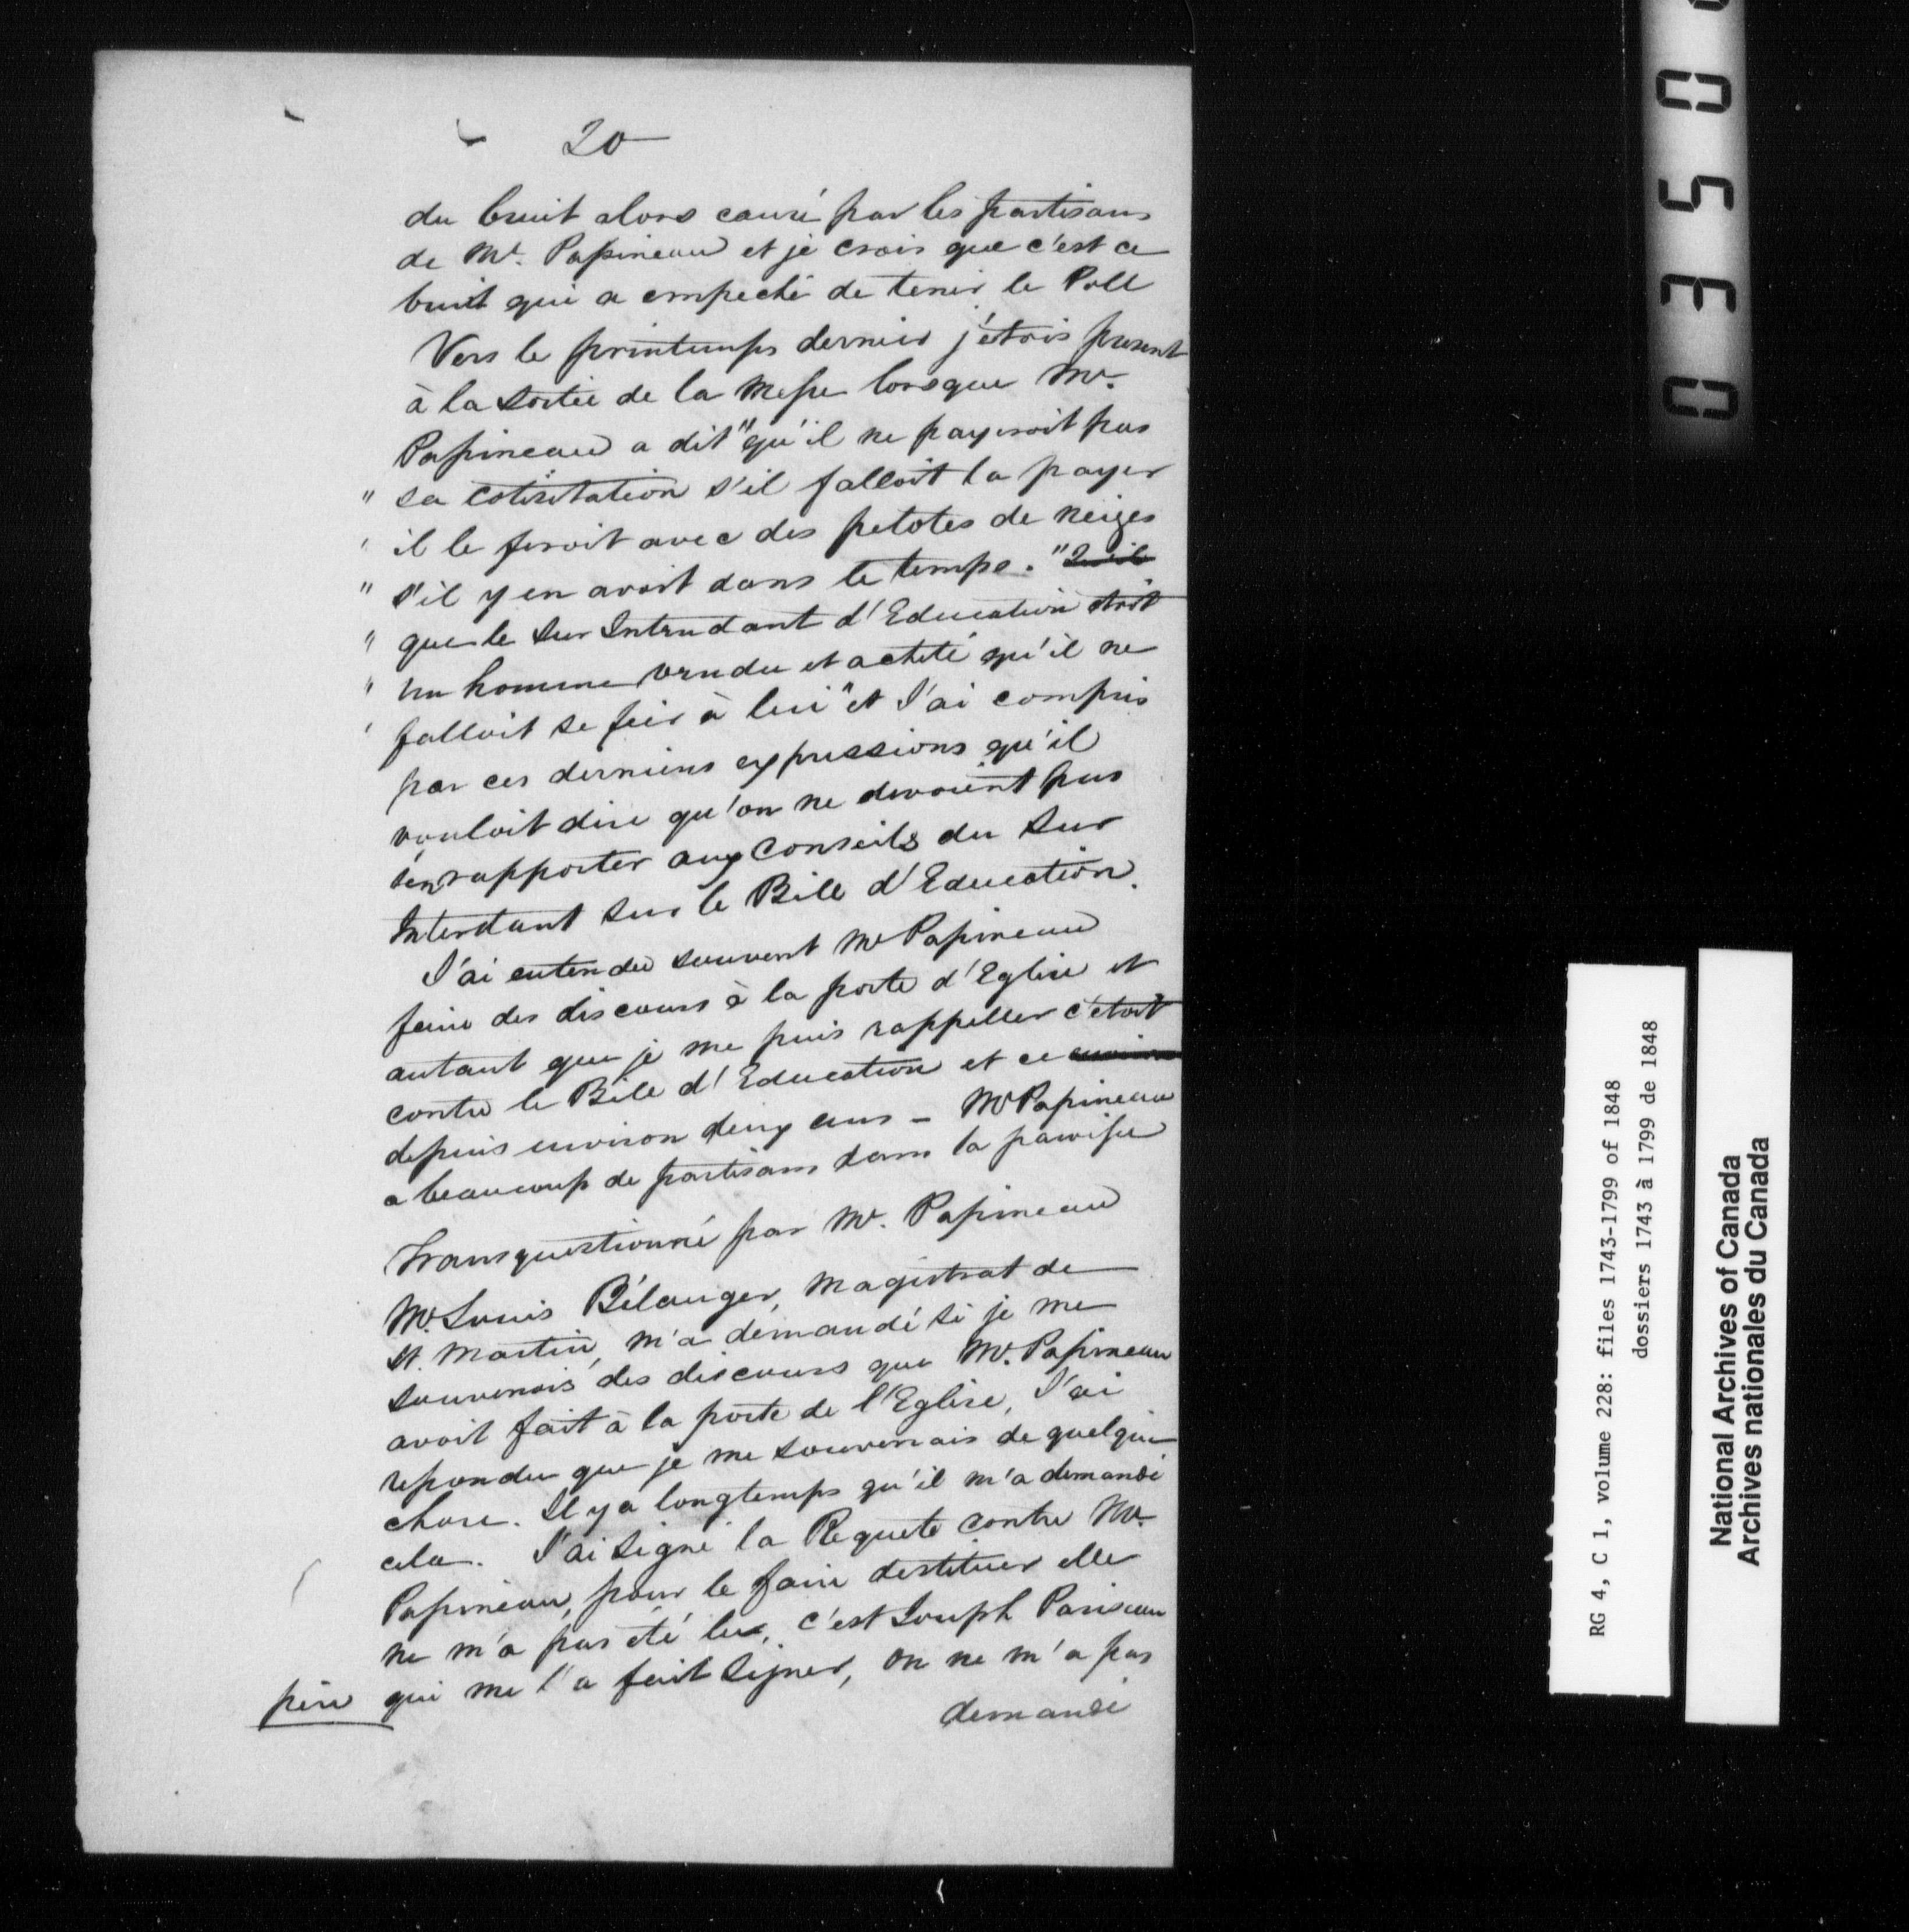 20
du bruit alors causé par les partisans
de Mr. Papineau et je crois que c'est ce
bruit qui a empeché de tenir le Poll
Vers le printemps dernier j'étois present
à la Sortie de la Messe lorsque Mr.
Papineau a dit "qu'il ne payeroit pas
" sa cotisitation s'il falloit la payer
' il le feroit avec des pelotes de neiges
" s'il y en avoit dans le temps. " Qu'il
" que le Sur Intendant d'Education étoit
" un homme vendu et acheté qu'il ne
' falloit se fier à lui" et J'ai compris
par ces derniers expressions qu'il
vouloit dire qu'on ne devoient pas
s'en rapporter aux Conseils du Sur
Intendant sur le Bill d'Education.
J'ai entendu souvent Mr Papineau
faire des discours à la porte d'Eglise et
autant que je me puis rappeller c'étoit
contre le Bill d'Education et ce environ
depuis environ deux ans – Mr Papineau
a beaucoup de partisans dans la paroisse
Transquestionné par Mr. Papineau
Mr. Louis Bélanger, Magistrat de
St. Martin, m'a demandé si je me
souvenois des discours que Mr. Papineau
avoit fait à la porte de l'Eglise, J'ai
repondu que je me souvenais de quelque
chose. Il y a longtemps qu'il m'a demandé
cela. J'ai signé la Requete contre Mr.
Papineau, pour le faire destituer elle
ne m'a pas été lue, c'est Joseph Pariseau
père qui me l'a fait signer, on ne m'a pas
demandé
0350
RG 4, C 1, volume 228: files 1743-1799 of 1848
dossiers 1743 à 1799 de 1848
National Archives of Canada
Archives nationales du Canada